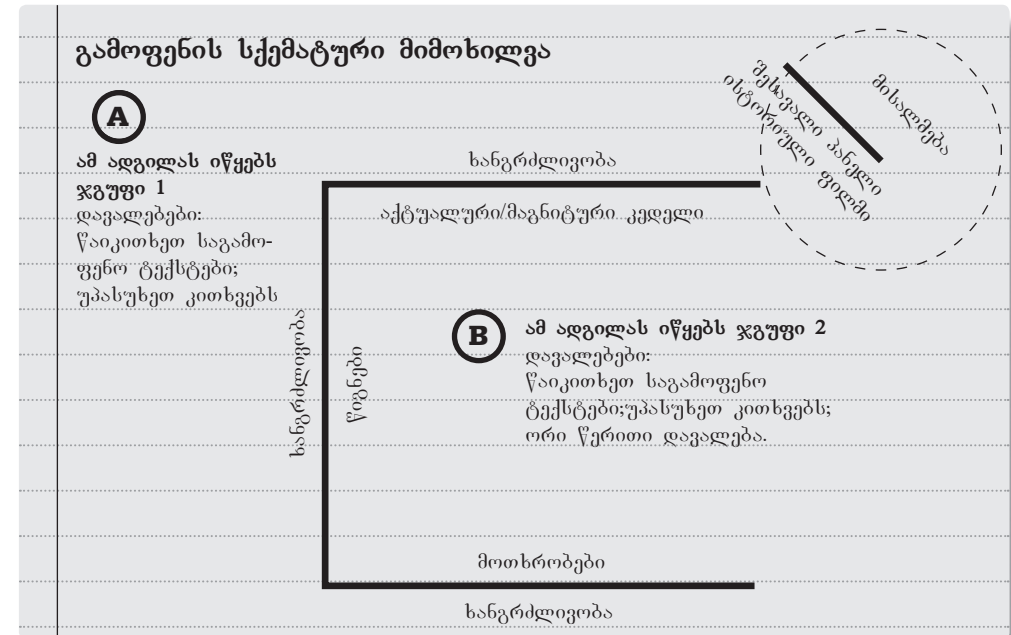 გამოფენის სქემატური მიმოხილვა
A
ამ ადგილას იწყებს
ჯგუფი 1
დავალებები:
წაიკითხეთ საგამო-
ფენო ტექსტები;
უპასუხეთ კითხვებს
შესავალი პანელი
ისტორიული ფილმი
მისალმება
ხანგრძლივობა
აქტუალური/მაგნიტური კედელი
ხანგრძლივობა
წიგნები
B
ამ ადგილას იწყებს ჯგუფი 2
დავალებები:
წაიკითხეთ საგამოფენო
ტექსტები;უპასუხეთ კითხვებს;
ორი წერითი დავალება.
მოთხრობები
ხანგრძლივობა